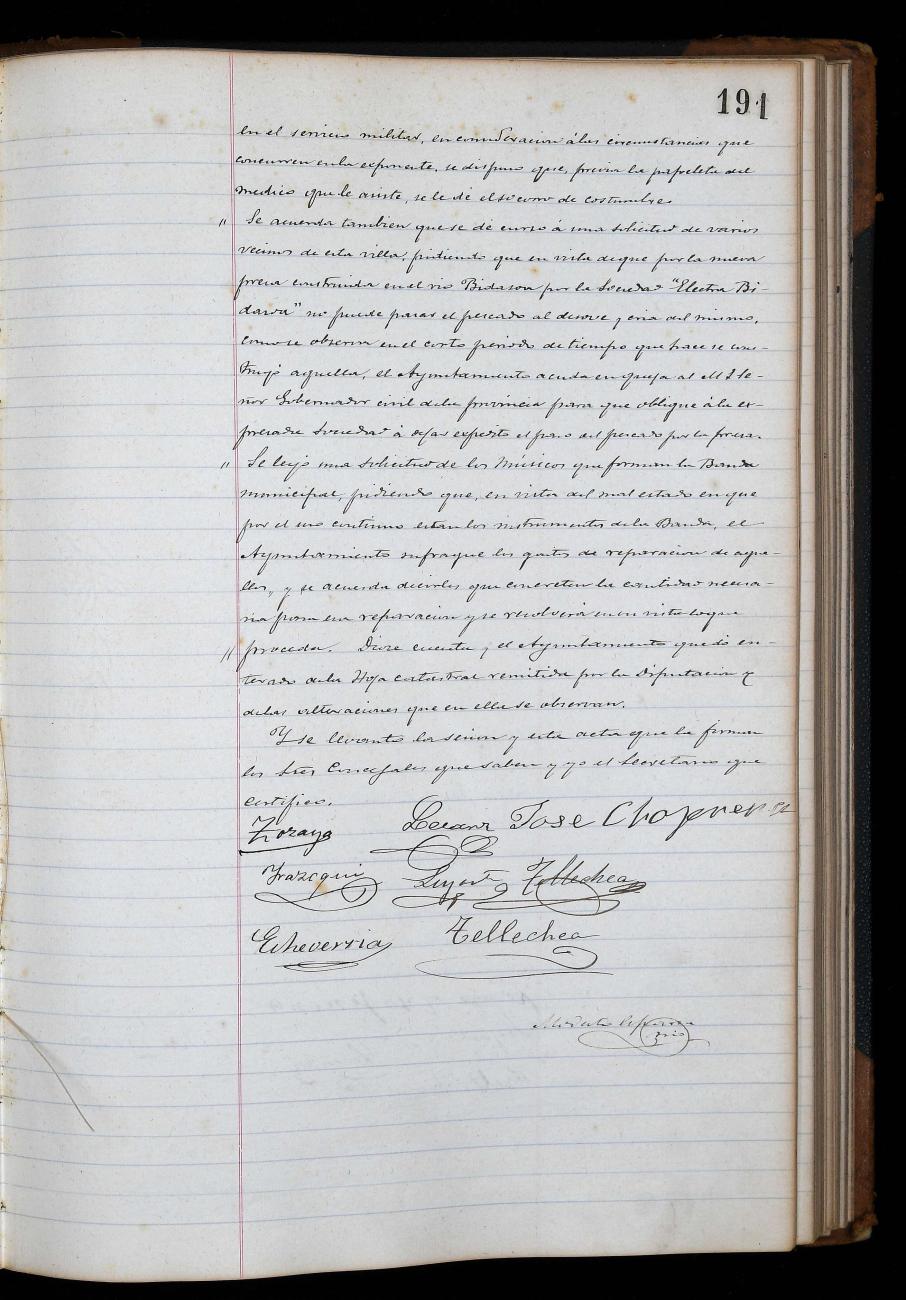 191
en el servicio militar, en consideracion á las circunstancias que
concurren en la exponente, se dispuso que, previa la papeleta del
medico que le asiste, se le dé el socorro de costumbre.
" Se acuerda tambien que se dé curso á una solicitud de varios
vecinos de esta villa, pidiendo que en vista de que por la nueva
presa construida en el rio Bidasoa por la Sociedad "Electra Bi-
dasoa" no puede pasar el pescado al desove y cria del mismo,
como se observa en el corto periodo de tiempo que hace se cons-
truyó aquella, el Ayuntamiento acuda en queja al M I Se-
ñor Gobernador civil de la provincia para que obligue á la ex-
presada Sociedad á dejar expedito el paso del pescado por la presa.
" Se leyó una solicitud de los Músicos que forman la Banda
municipal, pidiendo que, en vista del mal estado en que
por el uso continuo estan los instrumentos de la Banda, el
Ayuntamiento sufrague los gastos de reparacion de aque-
llos, y se acuerda decirles que concreten la cantidad necesa-
ria para esa reparacion y se resolverá en su vista lo que
" proceda. Diose cuenta y el Ayuntamiento quedó en-
terado de la Hoja catastral remitida por la Diputacion y
de las alteraciones que en ella se observan.
Y se levantó la sesion y esta acta que la firman
los Sres Concejales que saben y yo el Secretario que
certifico.
Zoraya Jose
Irazoqui Tellechea
Echeverria Tellechea